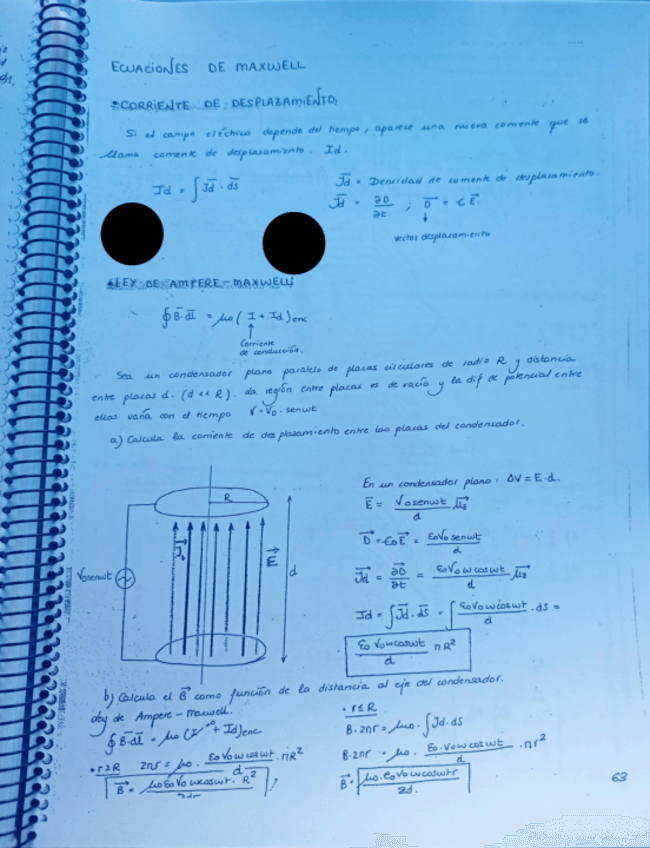 ECUACIONES DE MAXWELL
*CORRIENTE DE DESPLAZAMIENTO,
Si el campo eléctrico depende del tiempo, aparece una nueva corriente que se
llama corriente de desplazamiento. Id.
Id = ∫ J̄d · ds̄
J̄d = Densidad de corriente de desplazamiento.
J̄d = ∂D/∂t ; D̄ = ε E⃗.
vector desplazamiento
*LEY DE AMPERE-MAXWELL
∮ B̄·dl̄ = μo ( I + Id )enc
Corriente
de conducción.
Sea un condensador plano paralelo de placas circulares de radio R y distancia
entre placas d. (d << R). La región entre placas es de vacío y la dif de potencial entre
ellas varía con el tiempo V=Vo. senwt
a) Calcula la corriente de desplazamiento entre las placas del condensador.
R
E⃗
d
Vosenwt
En un condensador plano: ΔV = E·d.
E̅ = Vosenwt/d u⃗z
D⃗ = εo E⃗ = εoVosenwt/d
J⃗d = ∂D⃗/∂t = εoVowcoswt/d u⃗z
Id = ∫ J̄d · ds̄ = ∫ εoVowcoswt/d · ds =
εo Vowcoswt/d πR²
b) Calcula el B⃗ como función de la distancia al eje del condensador.
Ley de Ampere-Maxwell.
∮ B̄·dl̄ = μo (I→0 + Id)enc
• r≥R 2πr = μo · εoVowcoswt/d · πR²
B⃗ = μoεoVowcoswt · R²/2dr
• r≤R
B·2πr = μo · ∫ Jd·ds
B·2πr = μo · εo·Vowcoswt/d · πr²
B⃗ = μo·εoVowcoswtr/2d.
63